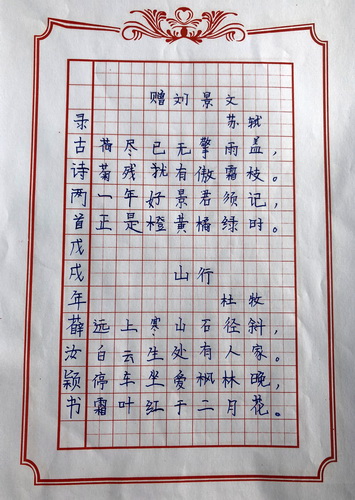 赠刘景文
苏轼
荷尽已无擎雨盖，
菊残犹有傲霜枝。
一年好景君须记，
正是橙黄橘绿时。
山行
杜牧
远上寒山石径斜，
白云生处有人家。
停车坐爱枫林晚，
霜叶红于二月花。
录古诗两首戊戌年薛汝颖书